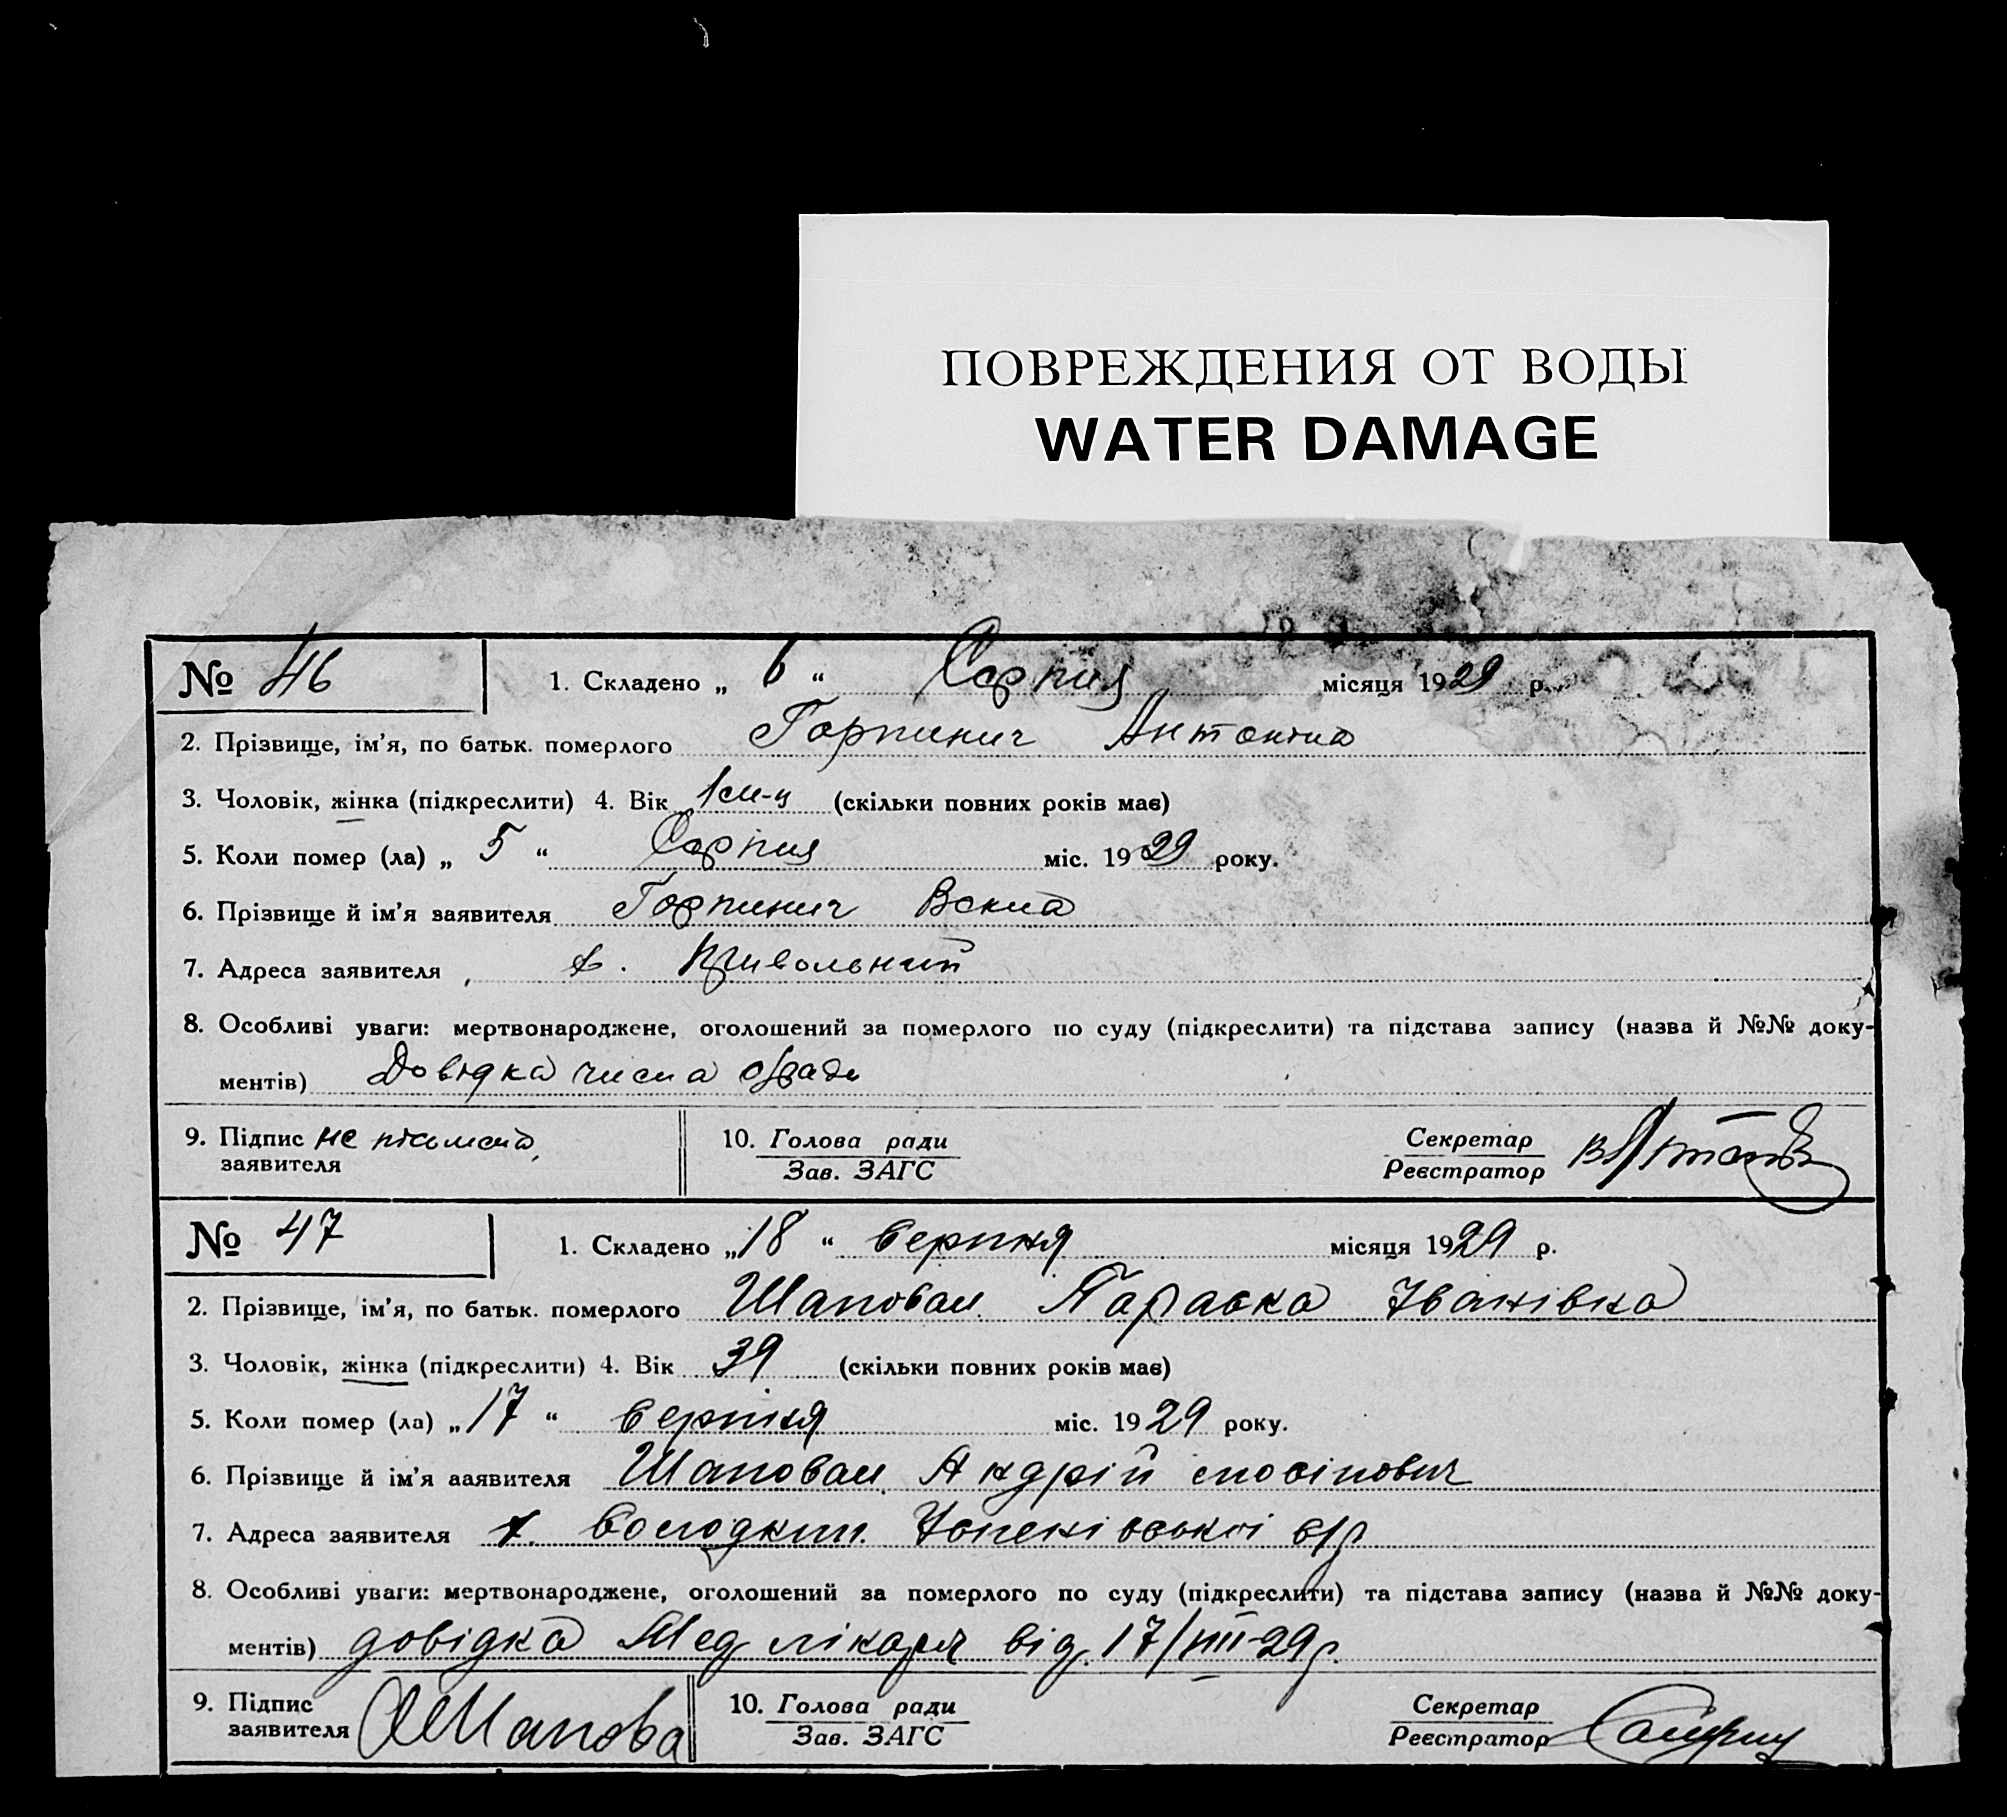 ПОВРЕЖДЕНИЯ ОТ ВОДЫ
WATER DAMAGE
№ 46 1. Складено „ 6 “ Серпня місяця 1929 р.
2. Прізвище, ім'я, по батьк. померлого Горпинич Антоніна
3. Чоловік, жінка (підкреслити) 4. Вік 1 м-ц (скільки повних років має)
5. Коли помер (ла) „ 5 “ Серпня міс. 1929 року.
6. Прізвище й ім'я заявителя Горпинич
7. Адреса заявителя х. Привольний
8. Особливі уваги: мертвонароджене, оголошений за померлого по суду (підкреслити) та підстава запису (назва й №№ доку-
ментів) Довідка
9. Підпис не письмена, 10. Голова ради Секретар
заявителя Зав. ЗАГС Реєстратор
№ 47 1. Складено „ 18 “ серпня місяця 1929 р.
2. Прізвище, ім'я, по батьк. померлого Шаповал Параска Іванівна
3. Чоловік, жінка (підкреслити) 4. Вік 39 (скільки повних років має)
5. Коли помер (ла) „ 17 “ серпня міс. 1929 року.
6. Прізвище й ім'я ааявителя Шаповал Андрій
7. Адреса заявителя х. с/р
8. Особливі уваги: мертвонароджене, оголошений за померлого по суду (підкреслити) та підстава запису (назва й №№ доку-
ментів) довідка Мед лікаря від. 17/VIII-29р.
9. Підпис АШапова 10. Голова ради Секретар
заявителя Зав. ЗАГС Реєстратор